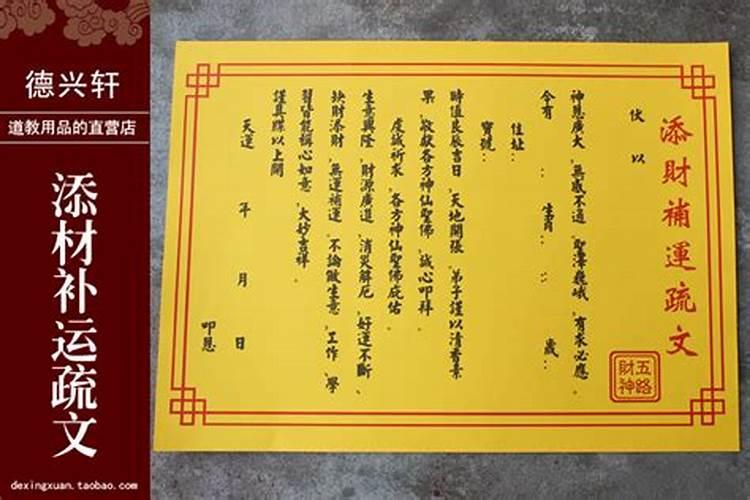 德兴轩
道教用品的直营店
添材补运疏文
dexingxuan.taobao.com
添財補運疏文
五路財神
伏以
神恩廣大、無感不通、聖澤巍峨、有求必應。
今有 : 生肖: : 歲:
住址:
寶號:
時值良辰吉日、天地開張、弟子謹以清香素
果、敬獻各方神仙聖佛、誠心叩拜。
虔誠祈求、各方神仙聖佛庇佑。
生意興隆、財源廣進、消災解厄、好運不斷、
缺財添財、無運補運、不論做生意、工作、學
習皆能稱心如意、大妙吉祥。
謹具牒以上聞
天運 年 月 日
叩恩